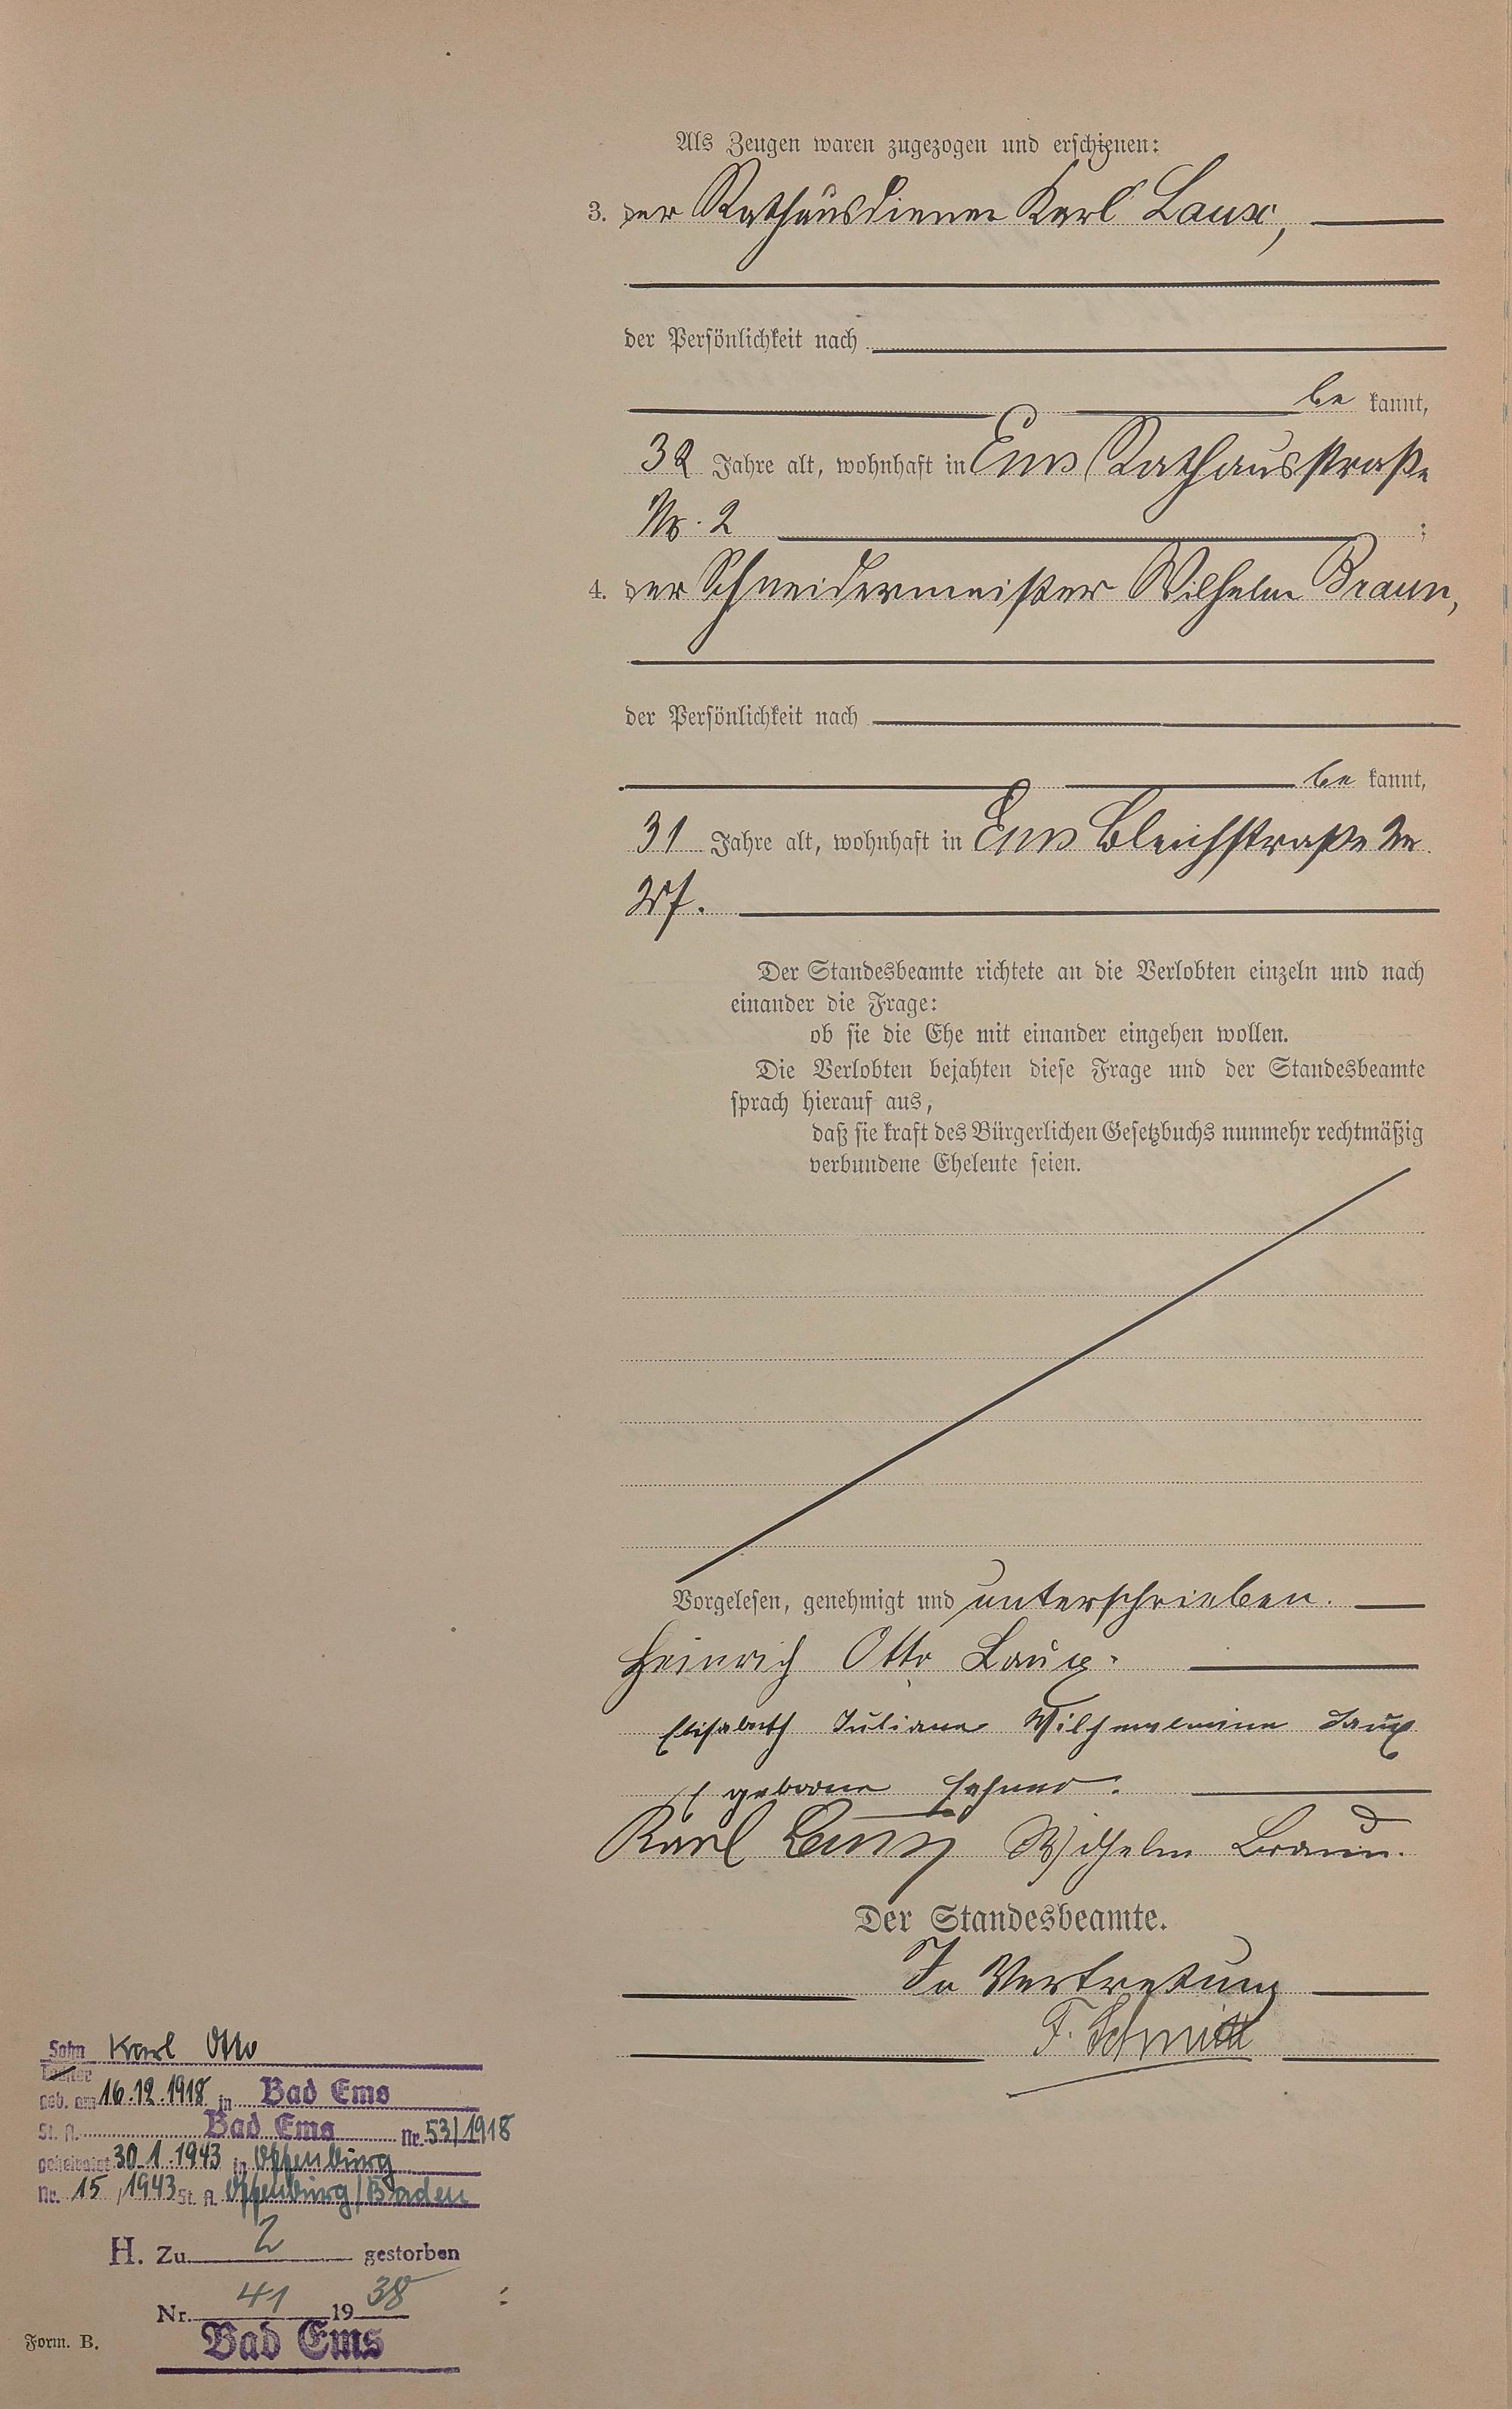 Als Zeugen waren zugezogen und erschienen:
3. der Rathausdiener Karl Laux,
der Persönlichkeit nach
be kannt,
32 Jahre alt, wohnhaft in Ems Rathausstraße
Nr. 2 ;
4. der Schneidermeister Wilhelm Braun,
der Persönlichkeit nach
be kannt,
31 Jahre alt, wohnhaft in Ems Bleichstraße Nr.
27.
Der Standesbeamte richtete an die Verlobten einzeln und nach
einander die Frage:
ob sie die Ehe mit einander eingehen wollen.
Die Verlobten bejahten diese Frage und der Standesbeamte
sprach hierauf aus,
daß sie kraft des Bürgerlichen Gesetzbuchs nunmehr rechtmäßig
verbundene Eheleute seien.
Vorgelesen, genehmigt und unterschrieben.
Heinrich Otto Laux.
Elisabeth Juliane Wilhelmine Laux
geborene
Karl Laux Wilhelm Braun.
Der Standesbeamte.
In Vertretung
F. Schmitt
Sohn Karl Otto
Tochter
geb. am 16.12.1918 in Bad Ems
St. A. Bad Ems Nr. 53/1918
geheiratet 30.1.1943 in Offenburg
Nr. 15/1943 St. A. Offenburg/Baden
H. Zu 2 gestorben
Nr. 41 1938
Bad Ems
Form. B.